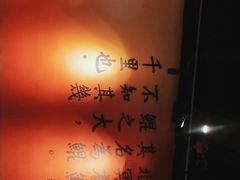 北冥有
其名為鯤。
鯤之大，
不知其幾
千里也。